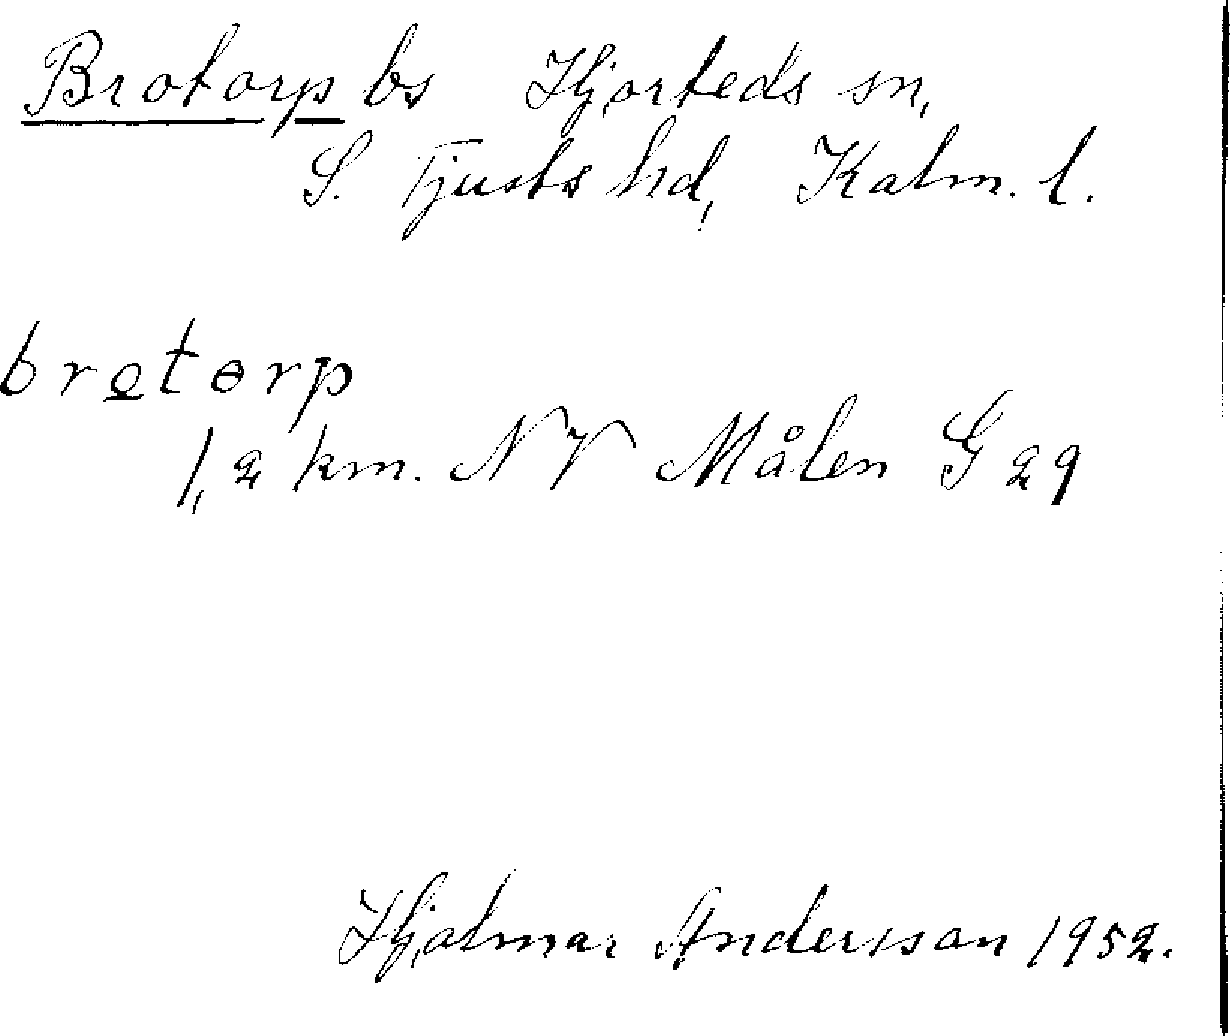 Brotorp bs Hjorteds sn,
S. Tjusts hd, Kalm. l.
bro̲tɵrp
1,2 km. NV Målen G 29
Hjalmar Andersson 1952.